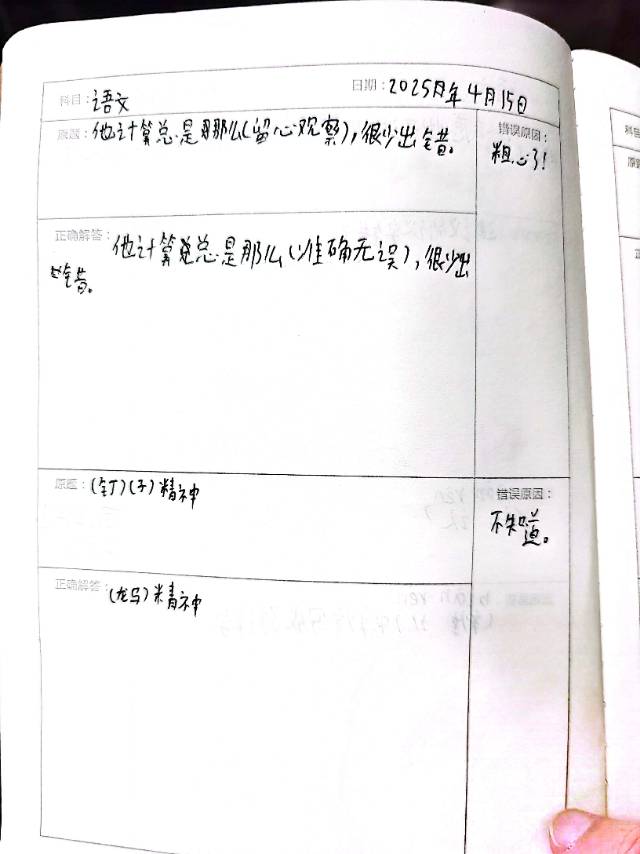 科目：语文
日期：2025月年4月15日
原题：他计算总是那么(留心观察)，很少出错。
错误原因：
粗心了！
正确解答：他计算总是那么(准确无误)，很少出
错。
原题：(钉)(子)精神
错误原因：
不知道。
正确解答：
(龙马)精神